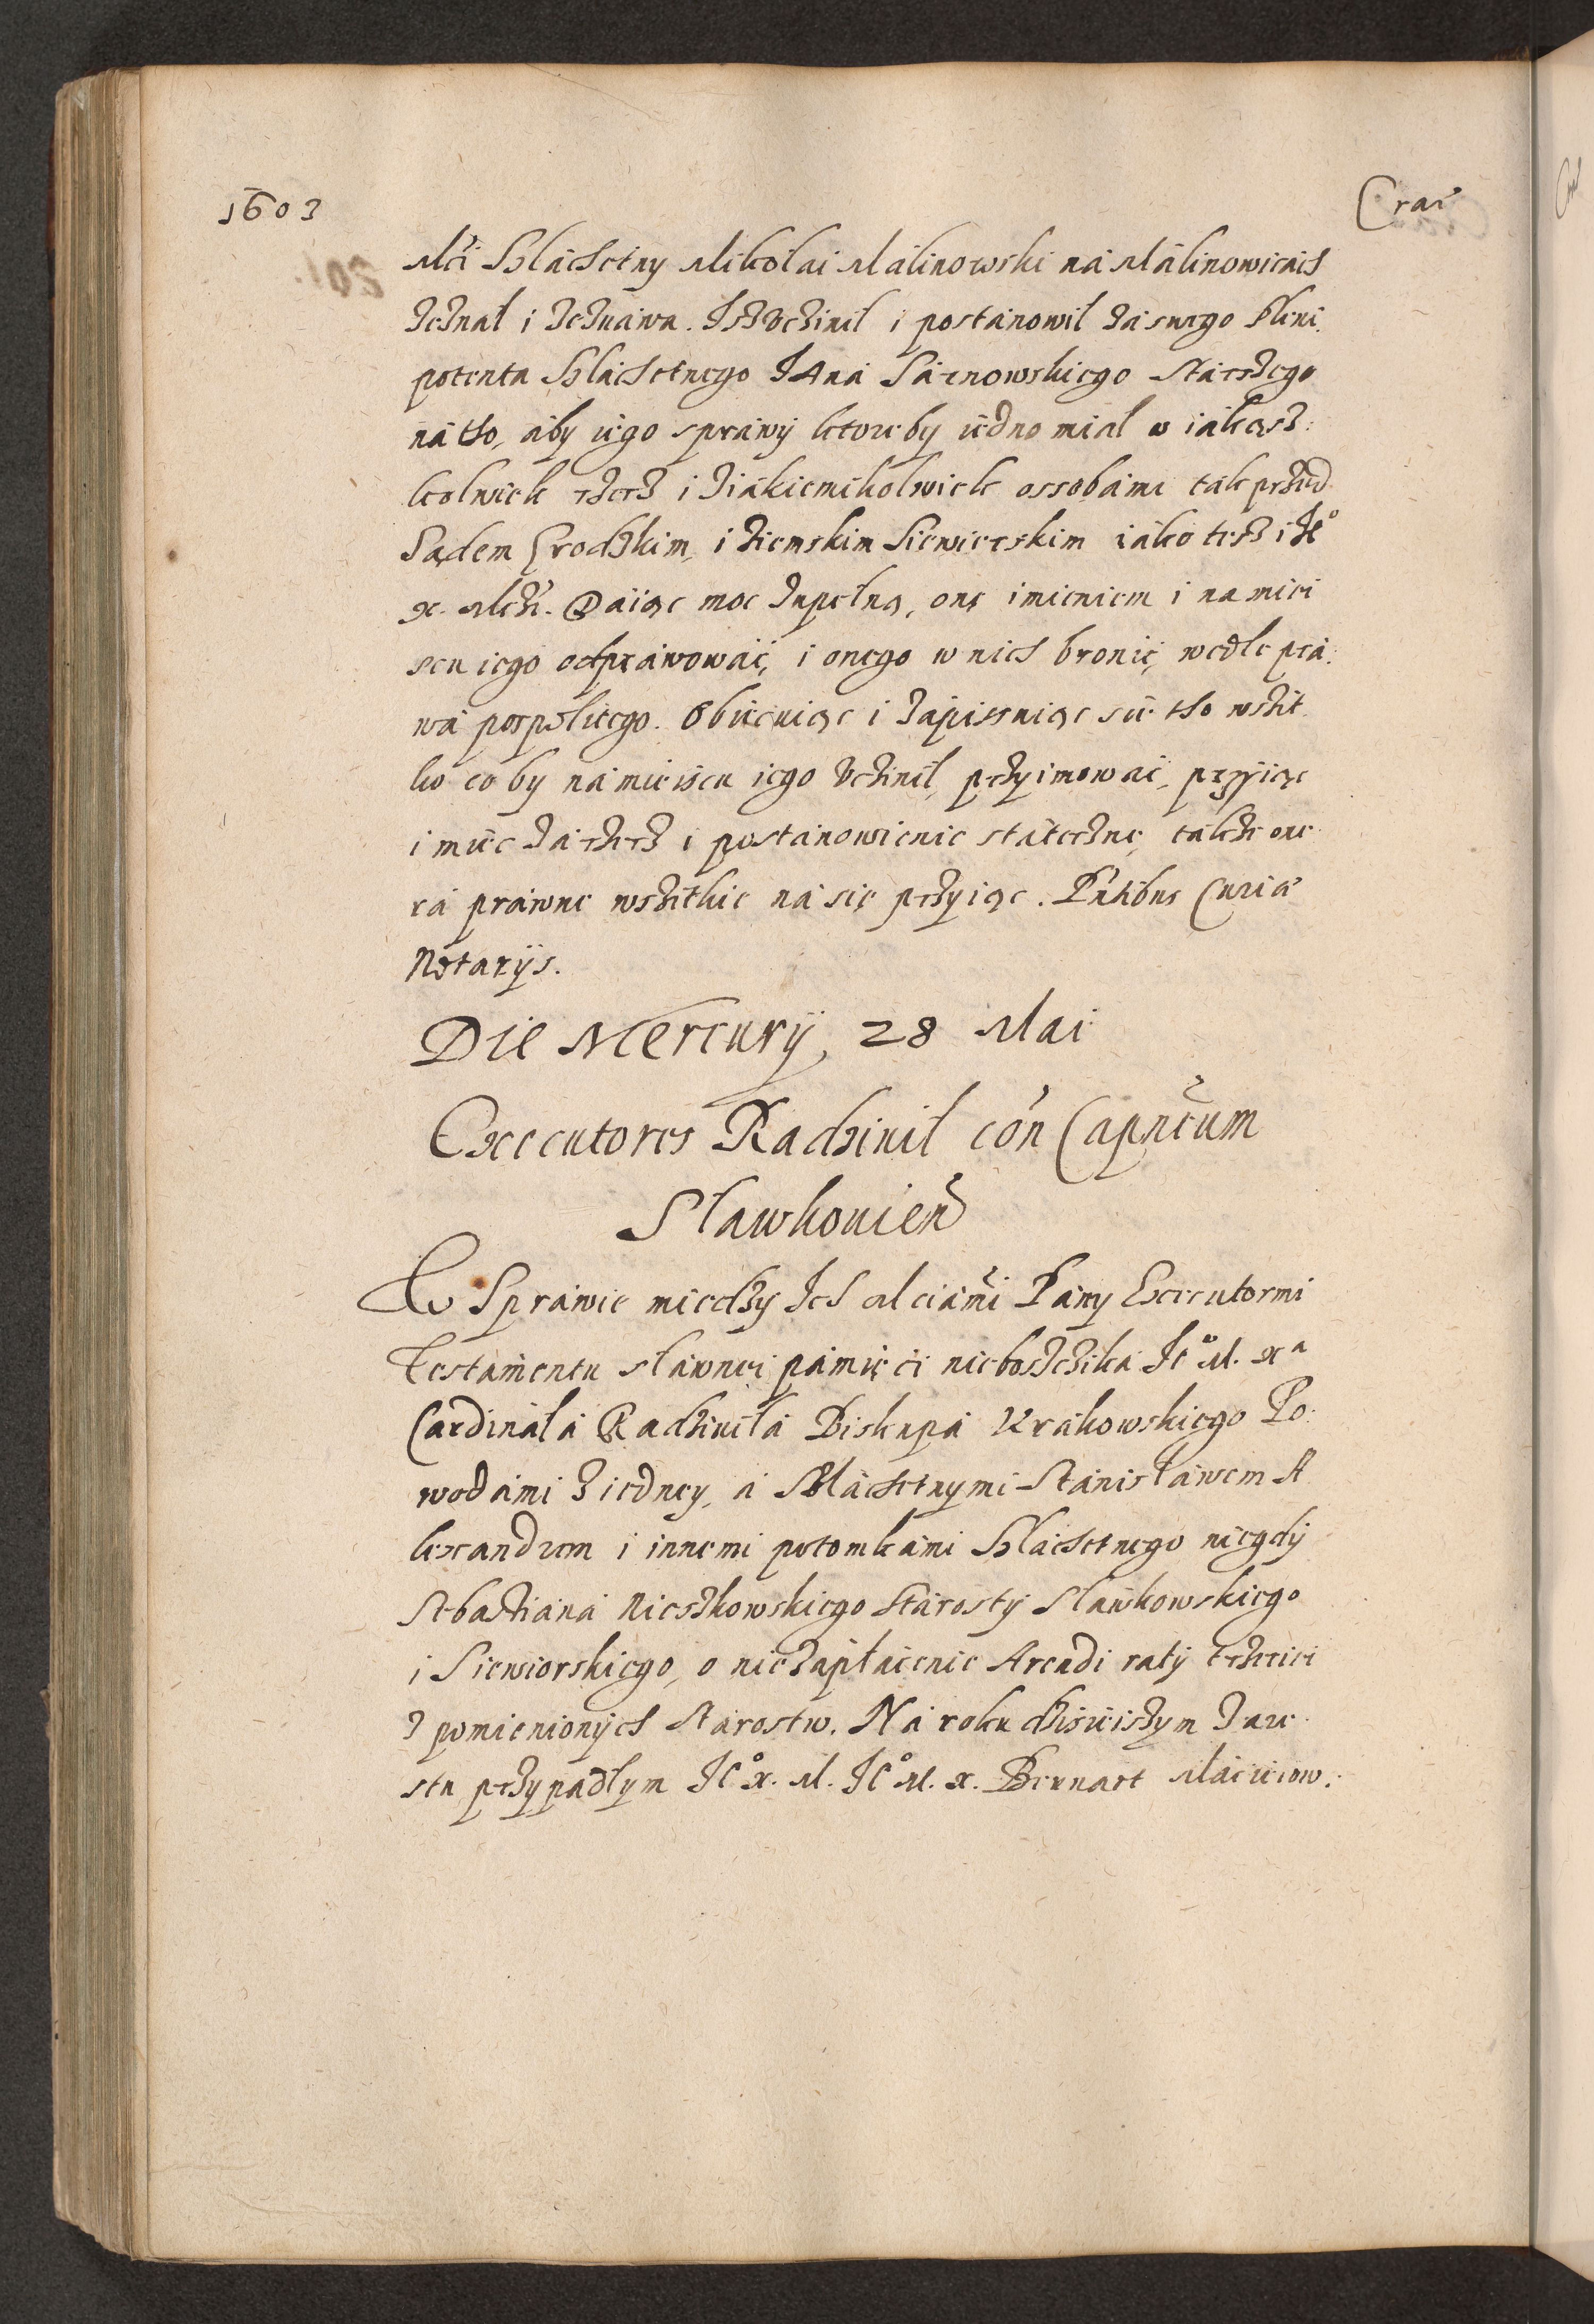 1603
Crac
Mci Slachetny Mikołai Málinowski ná Málinowicách
zeznał i zeznawa. Isz vczinił i postánowił zá swego Pleni
potenta Slachetnego Janá Sárnowskiego Stárszego
ná tho, áby iego spráwy ktoreby iedno miał o iákąsz:
kolwiek rzecz i ziákiemikolwiek ossobámi ták przed
Sądem Grodzkim, i ziemskim Siewierskim iáko tesz i Je°
x. Mczi. Dáiąc moc zupełną, one imieniem i na miei
scu iego odpráwowáć, i onego w nich bronić, wedle prá:
wá pospolitego. Obiecuiąc i zápissuiąc sie tho wszit
ko co by ná mieiscu iego vczinił, przyimowáć, przyiąc
i miec zá rzecz i postánowienie státeczne, tákze one
rá práwne wszitkie ná się przyiąc. Pntibus Curiæ
Notarijs.
Die Mercurij, 28 Mai
Executores Radziuil con Capneum
Sławkouien
W Spráwie miedzy Ich Mciámi Pány Executormi
Testámentu sławnei pámięci nieboszczika Je° M. xa
Cardináłá Rádziwiłá Biskupá Krákowskiego Po:
wodámi z iedney, á Slachetnymi Stánisłáwem A
lexandrem i innemi potomkámi Slachetnego niegdy
Sebastianá Nieszkowskiego Stárosty Sławkowskiego
i Siewiorskiego, o niezápłácenie Arendi ráty trzeciei
z pomienionych Stárostw. Ná roku dzisieiszym z are
stu przypadłym Je° x. M. Je° M. x. Bernart Máciciow: